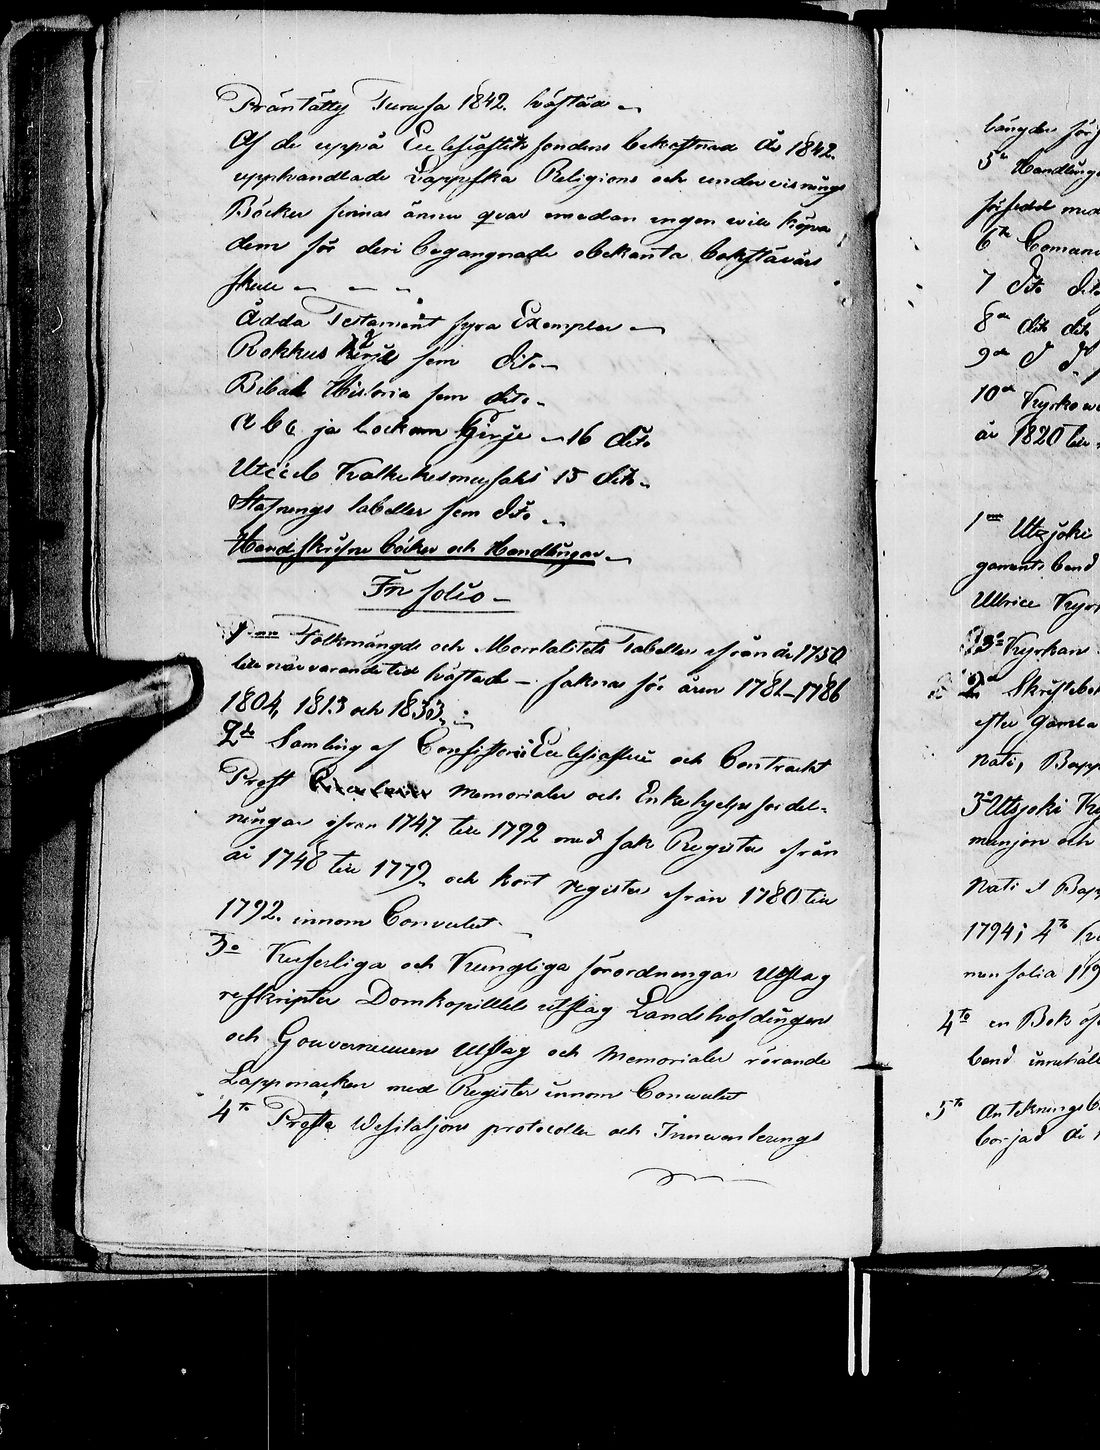 Präntätty Turusa 1842. häftad
Af de uppå Eclesiastik fondens bekostnad År 1842.
upphandlade Lappska Religions och undervisnings
Böcker finnas ännu qvar emedan ingen vill köpa
dem för deri begangnade obekanta bokstävers
skull
Ådda Testament fyra Exemplar
Rokkus kirje fem dito
Bibal Historia fem dito
a b c ja lockam Girje 16 dito
15 dito
Stafnings tabeller fem dito
Handskrifne böcker och Handlingar
In folio
1mo Folkmängds och Mortalitets Tabeller ifrån år 1750
till närvarande tid häftad - saknas för åren 1781-1786
1804, 1813 och 1833
2do Samling af Consistorii Eclesiastici och Contrackt
Prost Memorialer och Enkehjelps fördel-
ningar ifrån 1747 till 1792 med sak Register ifrån
år 1748 till 1779 och kort register ifrån 1780 till
1792. innom Convolut
3o Keiserliga och Kungliga förordningar Utslag
reskripter Domkapitlets utslag Landshöfdingens
och Gouverneurens Utslag och Memorialer rörande
Lappmarken med Register innom Convolut
4to Prosta Visitations protocoller och Innventerings
längder för
5te Handlinga
6te
7 dito dito
8de dito dito
9de d d
10de Kyrko
år 1820 till
1mo Utsjoki
band
Ullrice Kyrk
Kyrkans
2 Skriftebok
efter Gamla
nati,
3o Utsjoki Ky
och
nati
1794; 4to
folia 119
4to en Bok
band innehåll
5to Anteknings b
borjad år 1